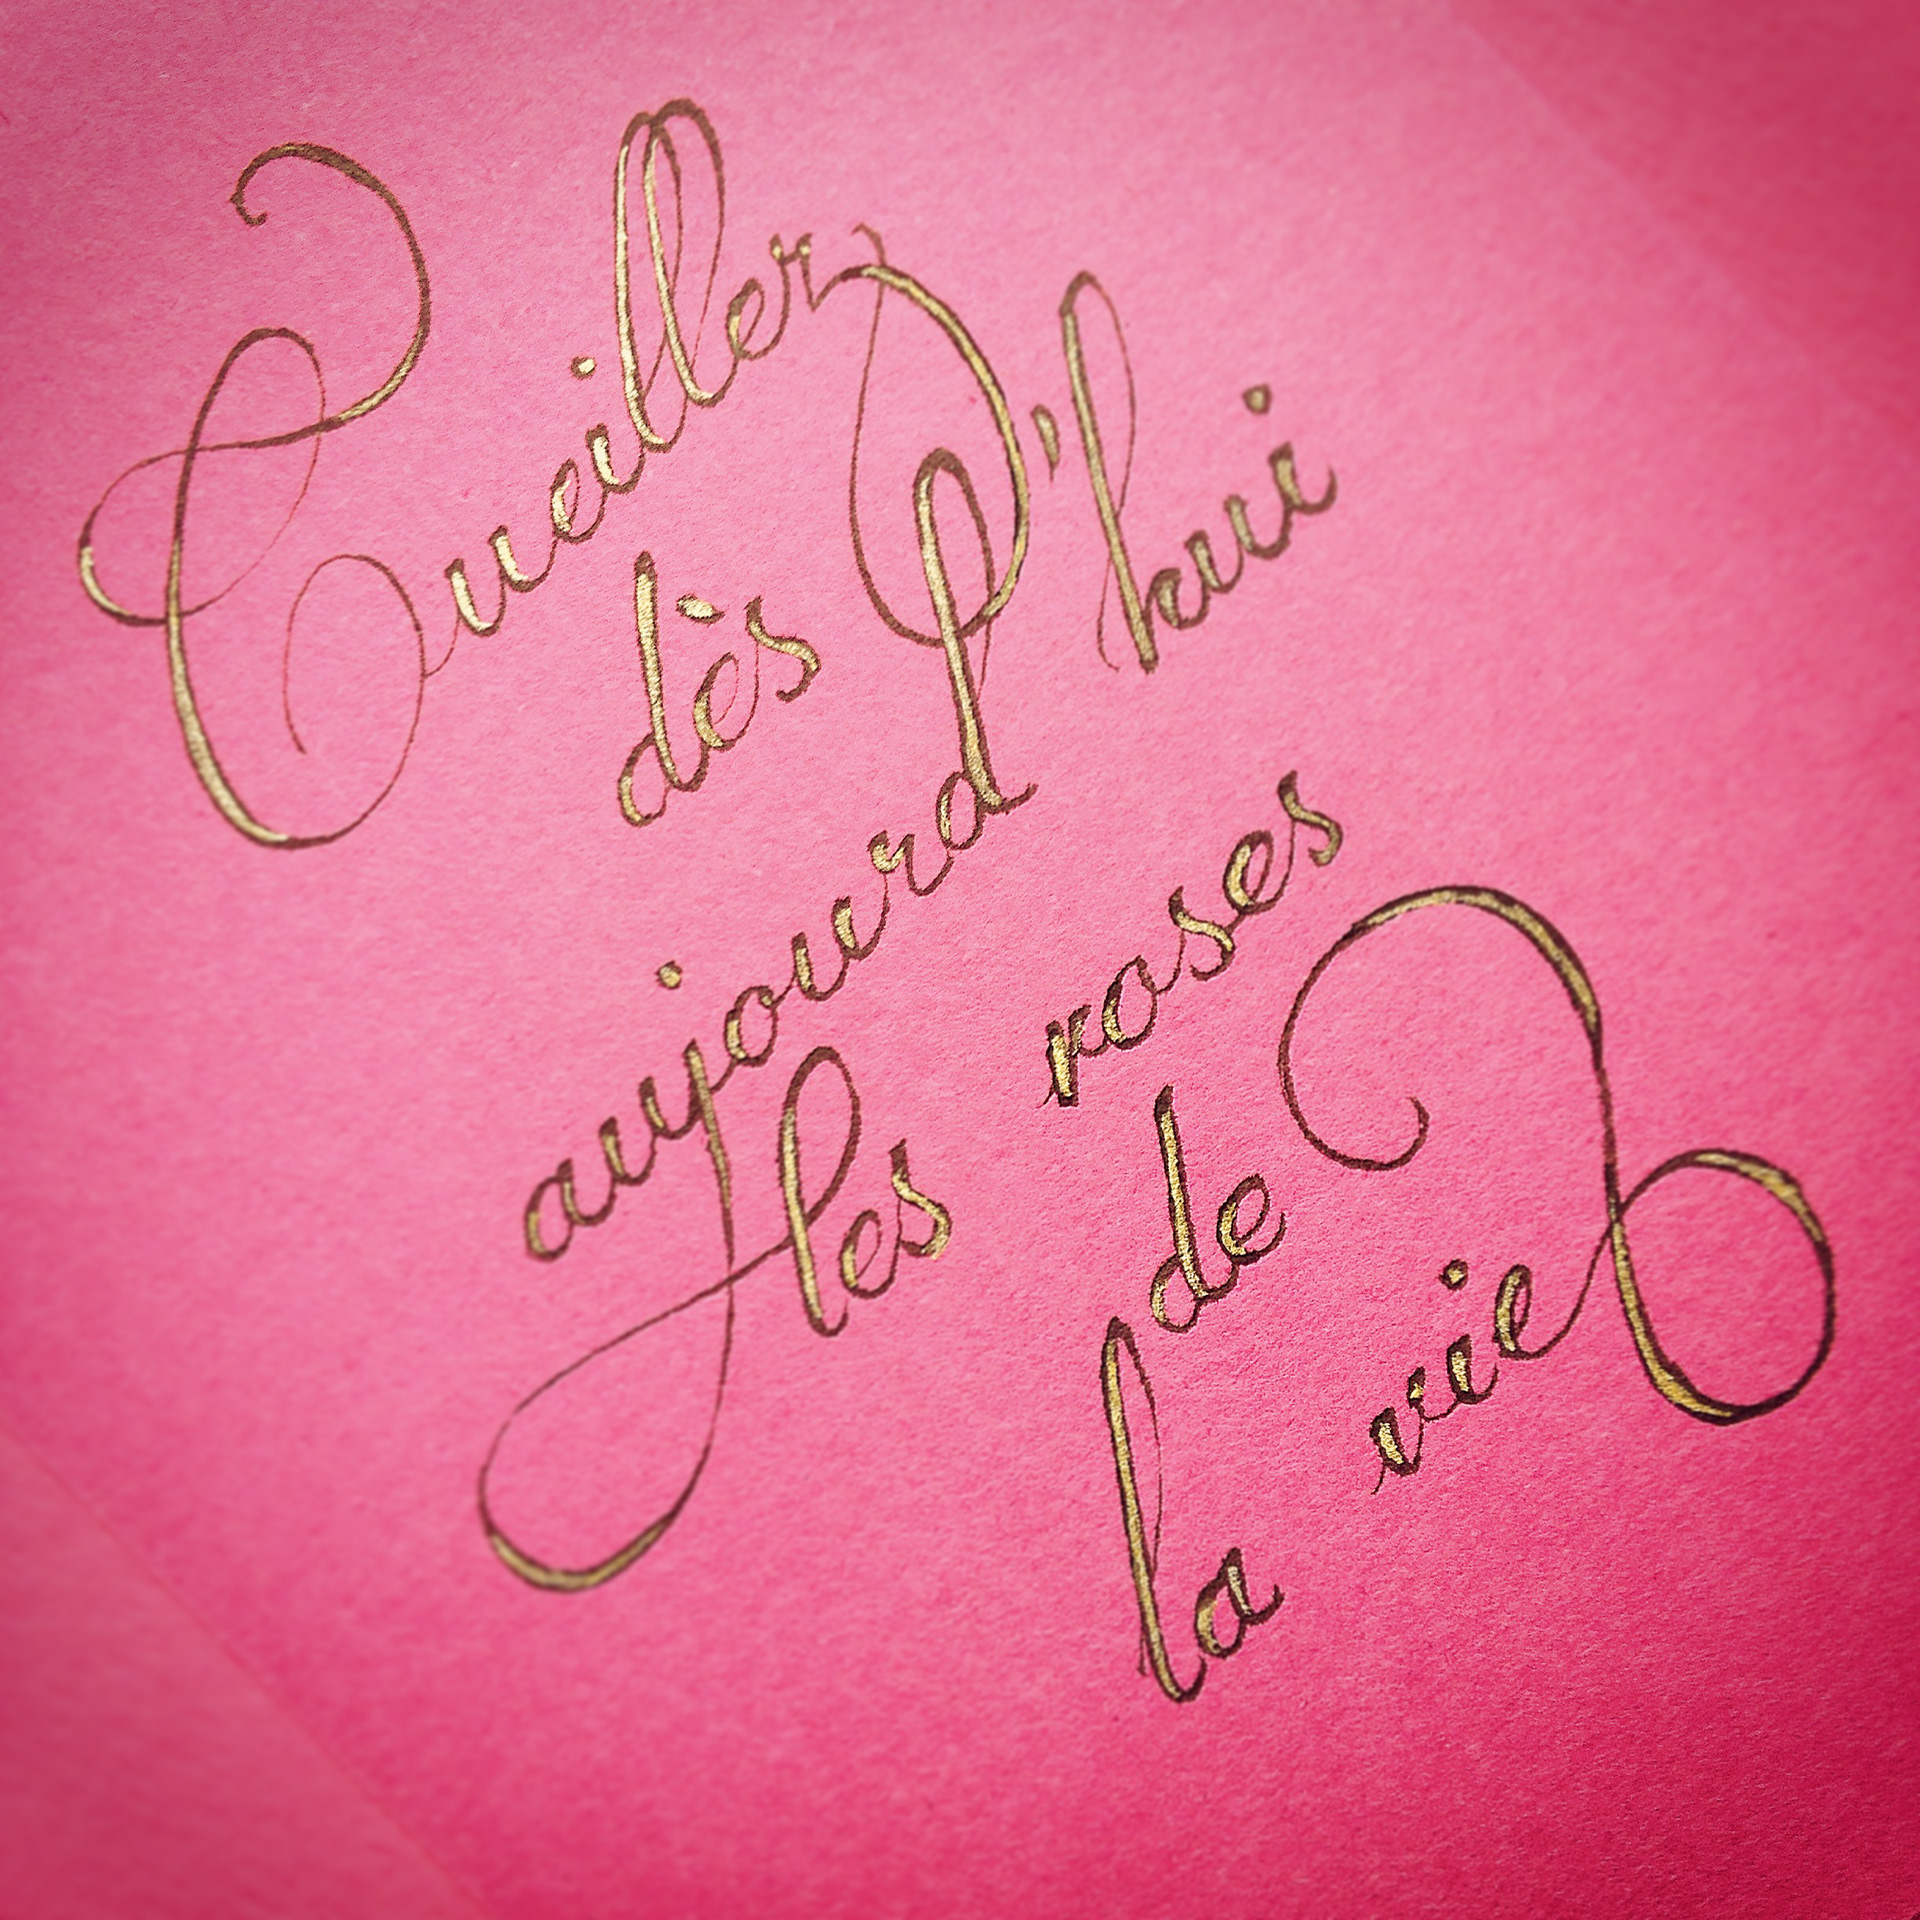 Cueiller
dès
aujourd'hui
les roses
de
la vie